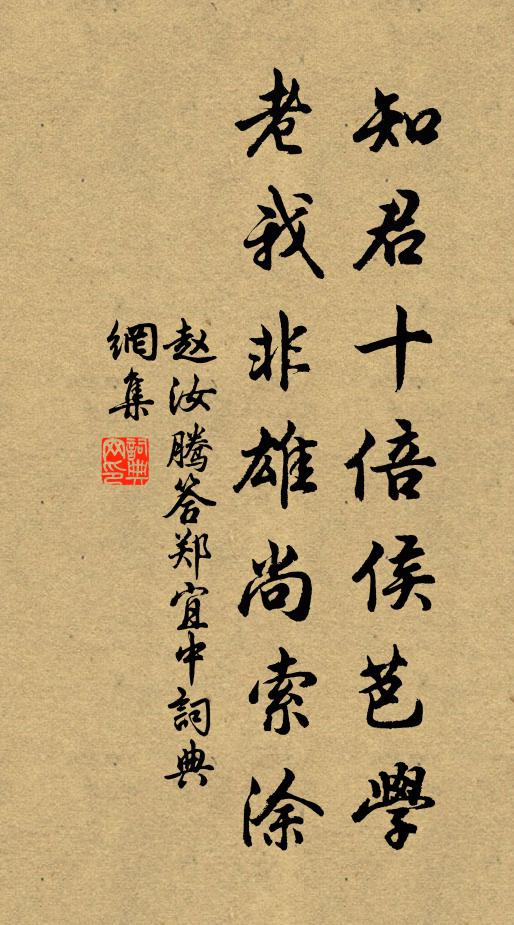 知君十倍侯芭學
老我非雄尚索涂
赵汝腾答郑宜中詞典
網集
詞典网印